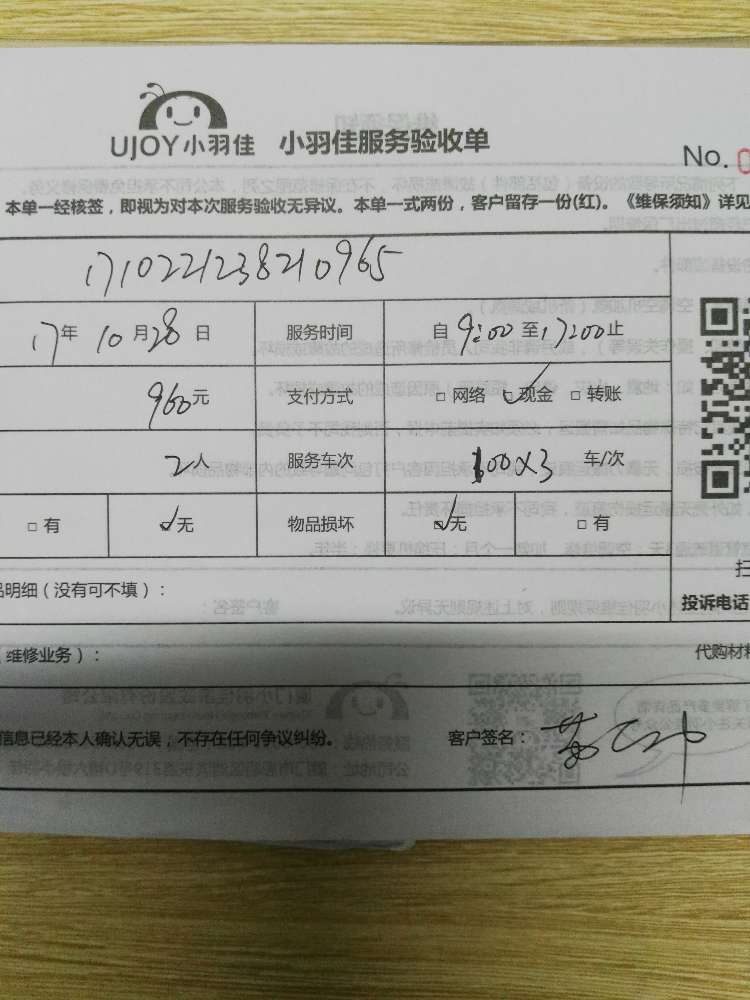 UJOY小羽佳 小羽佳服务验收单
No. 0
本单一经核签，即视为对本次服务验收无异议。本单一式两份，客户留存一份(红)。《维保须知》详见
1710221238210965
17年 10月28日 服务时间 自 9:00 至 17:00 止
960元 支付方式 □ 网络 ☑ 现金 □ 转账
2人 服务车次 100×3 车/次
□ 有 ☑ 无 物品损坏 ☑ 无 □ 有
扫
品明细（没有可不填）：
投诉电话
（维修业务）：
代购材料
信息已经本人确认无误，不存在任何争议纠纷。 客户签名：